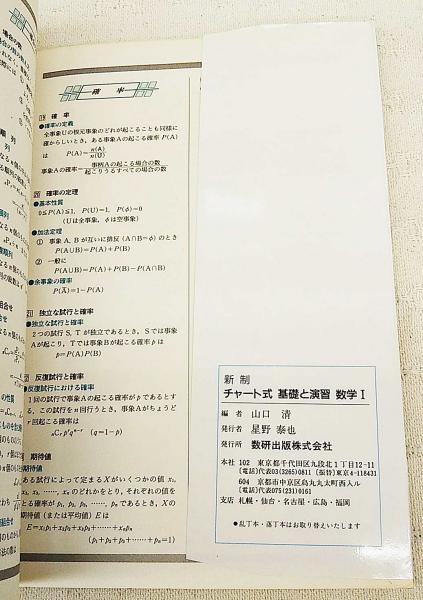 確 率
19 確 率
●確率の定義
全事象Uの根元事象のどれが起こることも同様に
確からしいとき，ある事象Aの起こる確率 P(A)
は P(A)=n(A)/n(U)
事象Aの確率=事柄Aの起こる場合の数/起こりうるすべての場合の数
20 確率の定理
●基本性質
0≦P(A)≦1, P(U)=1, P(φ)=0
(Uは全事象, φは空事象)
●加法定理
① 事象 A, B が互いに排反 (A∩B=φ) のとき
P(A∪B)=P(A)+P(B)
② 一般に
P(A∪B)=P(A)+P(B)−P(A∩B)
●余事象の確率
P(Ā)=1−P(A)
21 独立な試行と確率
●独立な試行と確率
2つの試行 S, T が独立であるとき，Sでは事象
Aが起こり，Tでは事象Bが起こる確率 p は
p=P(A)P(B)
反復試行と確率
●反復試行における確率
1回の試行で事象Aの起こる確率が p であるとす
る。この試行を n 回行うとき，事象Aがちょうど
r 回起こる確率は
nCr p^r q^(n−r) (q=1−p)
期待値
ある試行によって定まる X がいくつかの値 x₁,
x₂, x₃, ……, xₙ のどれかをとり，それぞれの値を
とる確率が p₁, p₂, ……, pₙ であるとき，X の
期待値 (または平均値) E は
E=x₁p₁+x₂p₂+x₃p₃+……+xₙpₙ
(p₁+p₂+p₃+……+pₙ=1)
新 制
チャート式 基礎と演習 数学Ⅰ
編 者 山口 清
発行者 星野 泰也
発行所 数研出版株式会社
本社 102 東京都千代田区九段北1丁目12-11
〔電話〕代表03(3265)0811〔振替〕東京4-118431
604 京都市中京区烏丸丸太町西入ル
〔電話〕代表075(231)0161
支店 札幌・仙台・名古屋・広島・福岡
●乱丁本・落丁本はお取り替えいたします